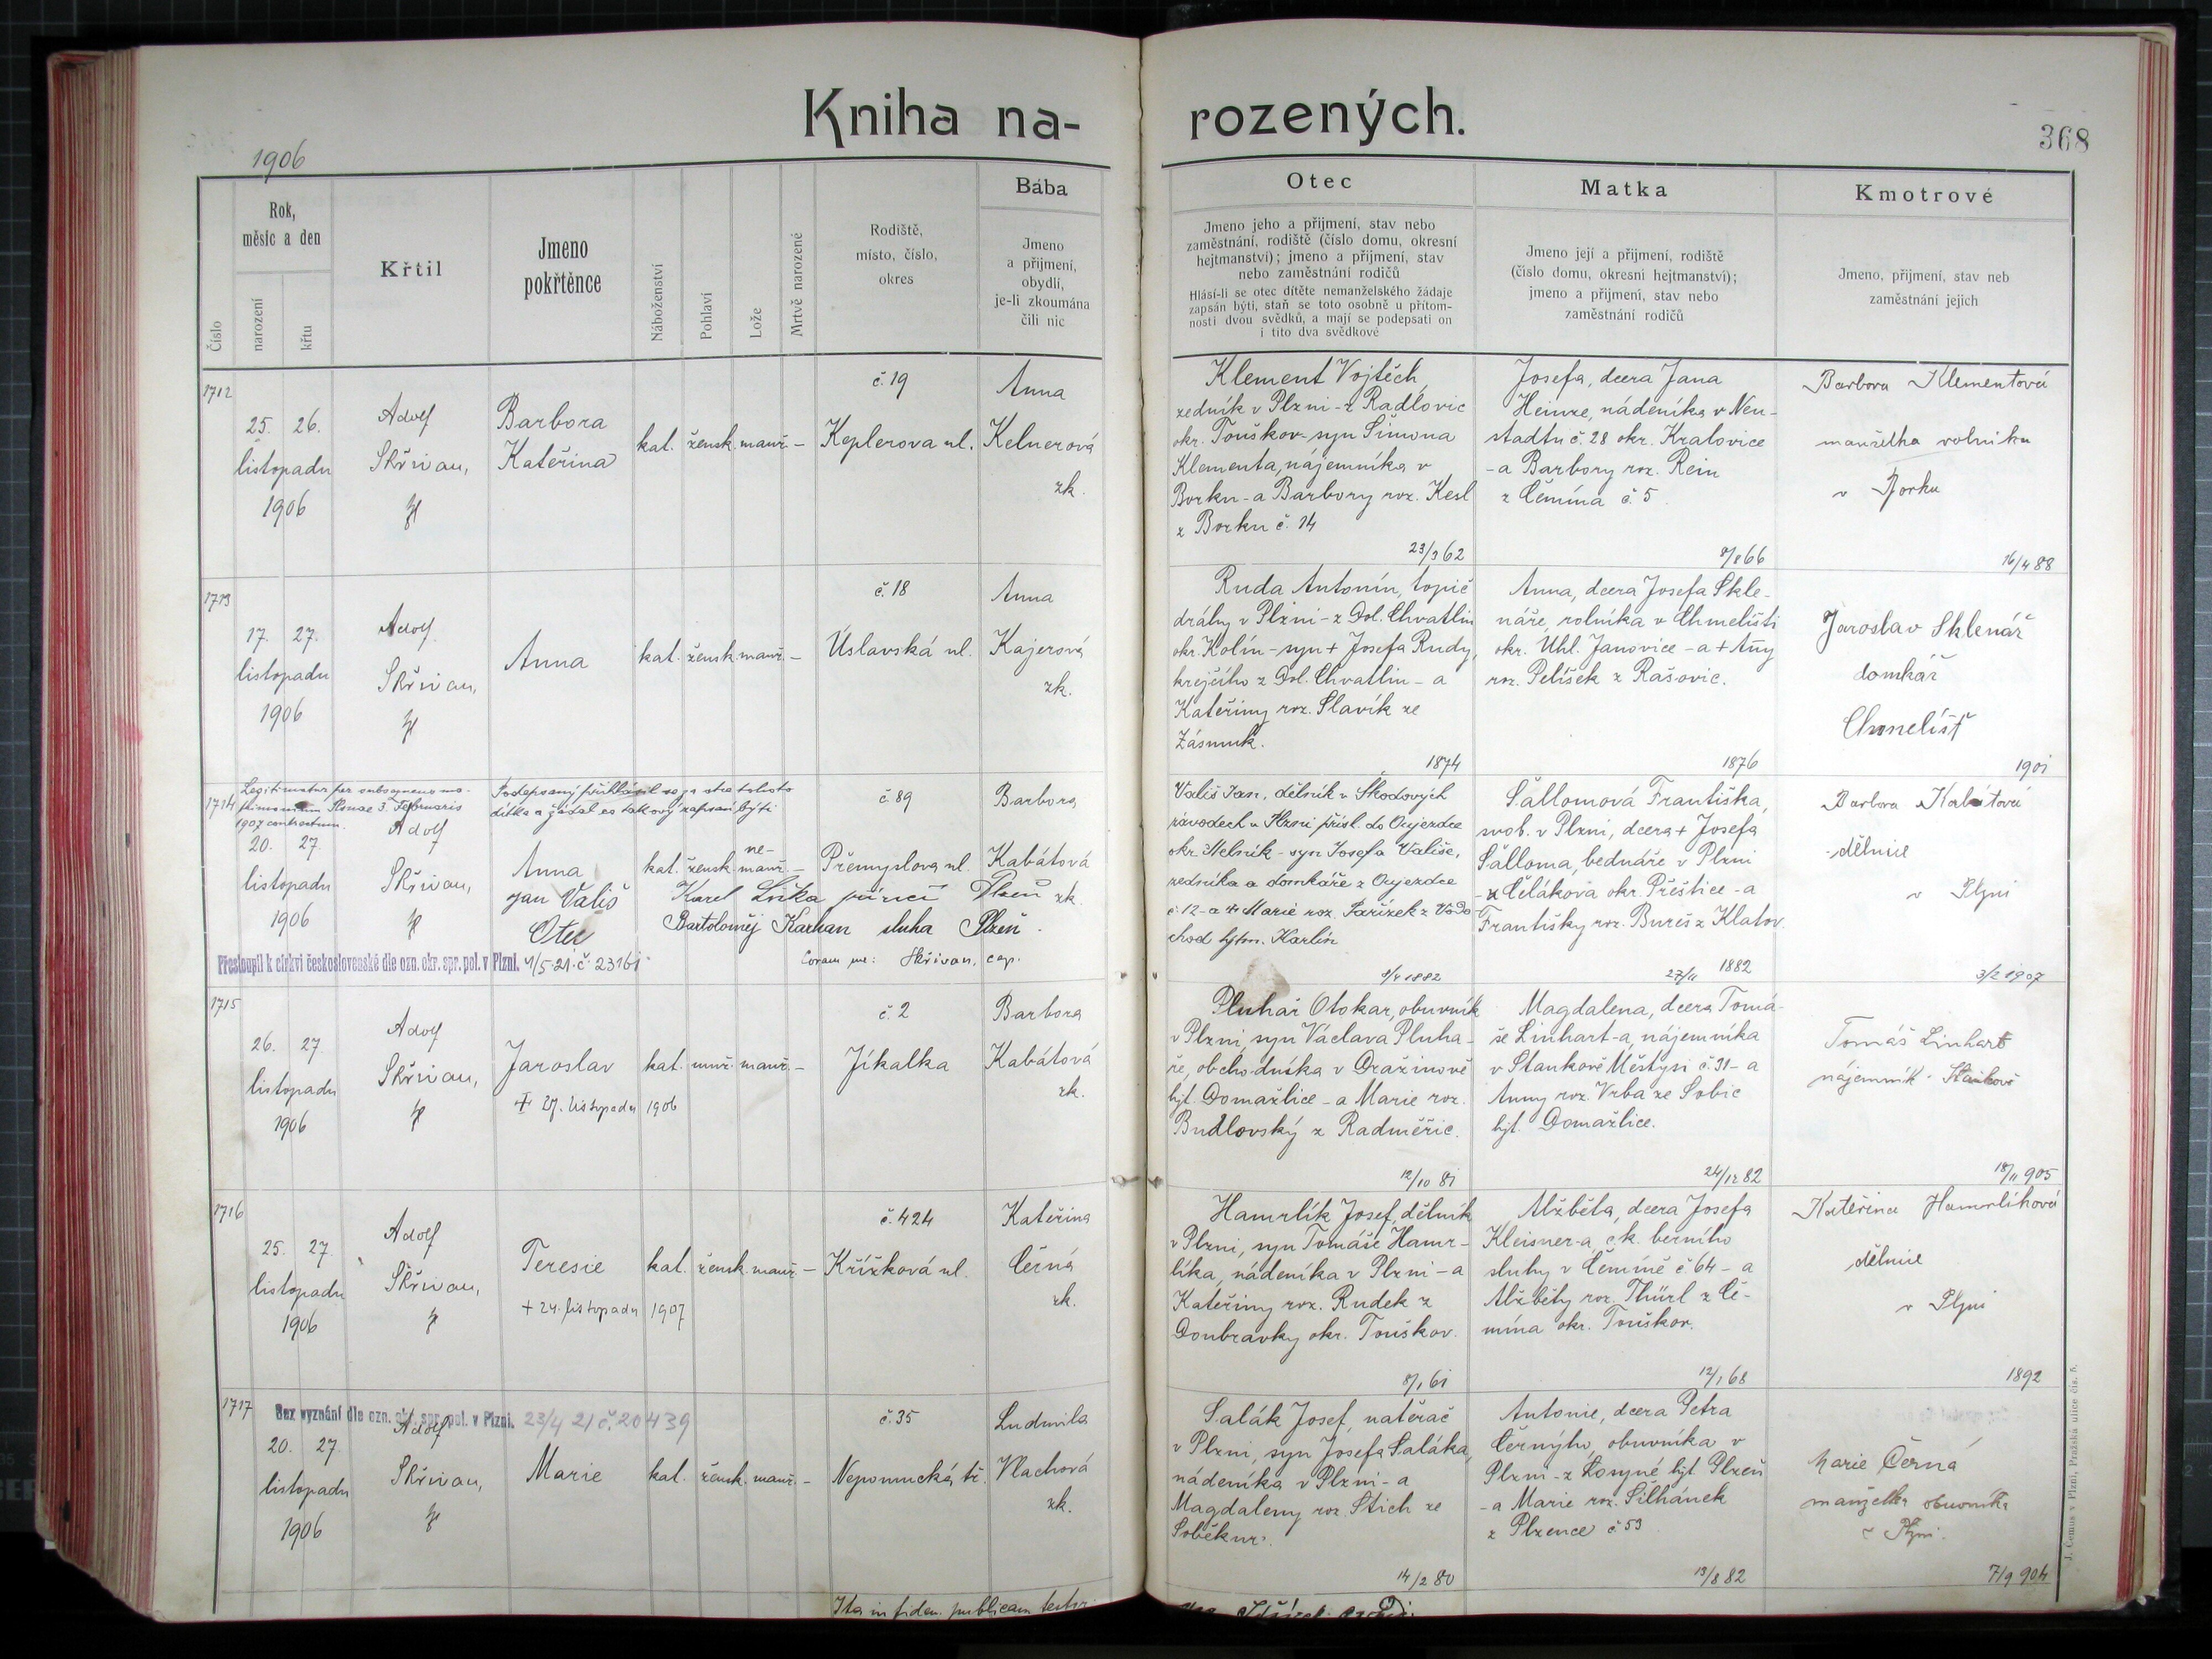 Kniha na-
rozených.
368
1906
Číslo
Rok,
měsíc a den
narození
křtu
Křtil
Jmeno
pokřtěnce
Náboženství
Pohlaví
Lože
Mrtvě narozené
Rodiště,
místo, číslo,
okres
Bába
Jmeno
a příjmení,
obydlí,
je-li zkoumána
čili nic
Otec
Jmeno jeho a příjmení, stav nebo
zaměstnání, rodiště (číslo domu, okresní
hejtmanství); jmeno a příjmení, stav
nebo zaměstnání rodičů
Hlásí-li se otec dítěte nemanželského žádaje
zapsán býti, staň se toto osobně u přítom-
nosti dvou svědků, a mají se podepsati on
i tito dva svědkové
Matka
Jmeno její a příjmení, rodiště
(číslo domu, okresní hejtmanství);
jmeno a příjmení, stav nebo
zaměstnání rodičů
Kmotrové
Jmeno, příjmení, stav neb
zaměstnání jejich
1712
25. 26.
listopadu
1906
Adolf
Skřivan,
Barbora
Kateřina
kat. žensk. manž. –
č. 19
Keplerova ul.
Anna
Kelnerová
zk.
Klement Vojtěch,
zedník v Plzni - z Radlovic
okr. Touškov - syn Šimona
Klementa, nájemníka v
Borku - a Barbory roz. Kesl
z Borku č. 14
23/3 62
Josefa, dcera Jana
Heinze, nádeníka v Neu-
stadtu č. 28 okr. Kralovice
- a Barbory roz. Rein
z Čemína č. 5.
9/8 66
Barbora Klementová
manželka rolníka
v Borku
16/4 88
1713
17. 27.
listopadu
1906
Adolf
Skřivan,
Anna
kat. žensk. manž. –
č. 18
Úslavská ul.
Anna
Kajerová
zk.
Ruda Antonín, topič
dráhy v Plzni - z Dol. Chvatlin
okr. Kolín - syn + Josefa Rudy,
krejčího z Dol. Chvatlin - a
Kateřiny roz. Slavík ze
Zásmuk.
1874
Anna, dcera Josefa Skle-
náře, rolníka v Chmelišti
okr. Uhl. Janovice - a + Anny
roz. Pelíšek z Rašovic.
1876
Jaroslav Sklenář
domkář
Chmelišť
1901
1714
Legitimata per subsequens ma-
trimonium Plsnae 3. Februaris
1907 contractum.
Podepsaný přihlásil se za otce tohoto
dítka a žádal co takový zapsaní býti
20. 27.
listopadu
1906
Adolf
Skřivan,
Anna
Jan Vališ
Otec
kat. žensk. ne-
manž. –
č. 89
Přemyslova ul.
Barbora
Kabátová
zk.
Karel Liška Plzeň
Bartoloměj Karhan sluha Plzeň.
Coram me: Skřivan, cap.
Přestoupil k církvi československé dle ozn. okr. spr. pol. v Plzni. 4/5 21 č. 23161
Vališ Jan, dělník v Škodových
závodech v Plzni přísl. do Oujezdce
okr. Mělník - syn Josefa Vališe,
zedníka a domkáře z Oujezdce
č. 12 - a + Marie roz. Pařízek z Vodo-
chod hejtm. Karlín
9/4 1882
Šallomová Františka,
svob. v Plzni, dcera + Josefa
Šalloma, bednáře v Plzni
- z Čelákova okr. Přeštice - a
Františky roz. Bureš z Klatov.
27/11 1882
Barbora Kabátová
dělnice
v Plzni
3/2 1907
1715
26. 27.
listopadu
1906
Adolf
Skřivan,
Jaroslav
+ 27. listopadu 1906
kat. muž. manž. –
č. 2
Jíkalka
Barbora
Kabátová
zk.
Pluhař Otokar, obuvník
v Plzni, syn Václava Pluha-
ře, obchodníka v Dražinově
hjt. Domažlice - a Marie roz.
Budlovský z Radměřic.
12/10 81
Magdalena, dcera Tomá-
še Linhart-a, nájemníka
v Stankově Městysi č. 31 - a
Anny roz. Vrba ze Sobic
hjt. Domažlice.
24/12 82
Tomáš Linhart
nájemník Staňkov
18/11 905
1716
25. 27.
listopadu
1906
Adolf
Skřivan,
Teresie
+ 24. listopadu 1907
kat. žensk. manž. –
č. 424
Křížková ul.
Kateřina
Černá
zk.
Hamrlík Josef, dělník
v Plzni, syn Tomáše Hamr-
líka, nádeníka v Plzni - a
Kateřiny roz. Rudek z
Doubravky okr. Touškov.
8/1 61
Alžběta, dcera Josefa
Kleisner-a, ck. berního
sluhy v Čemíně č 64 - a
Alžběty roz. Thürl z Če-
mína okr. Touškov.
12/1 68
Kateřina Hamrlíková
dělnice
v Plzni
1892
1717
Bez vyznání dle ozn. okr. spr. pol. v Plzni. 23/4 21 č. 20439
20. 27.
listopadu
1906
Adolf
Skřivan,
Marie
kat. žensk. manž. –
č. 35
Nepomucká tř.
Ludmila
Vlachová
zk.
Salák Josef, natěrač
v Plzni, syn Josefa Saláka,
nádeníka v Plzni - a
Magdaleny roz. Stich ze
Soběkur.
14/2 80
Antonie, dcera Petra
Černýho, obuvníka v
Plzni - z Losyné hjt. Plzeň
- a Marie roz. Šilhánek
z Plzence č 53
13/8 82
Marie Černá
manželka obuvníka
v Plzni.
7/9 904
Ita in fidem publicam testor
J. Čemus v Plzni, Pražská ulice čís. 5.